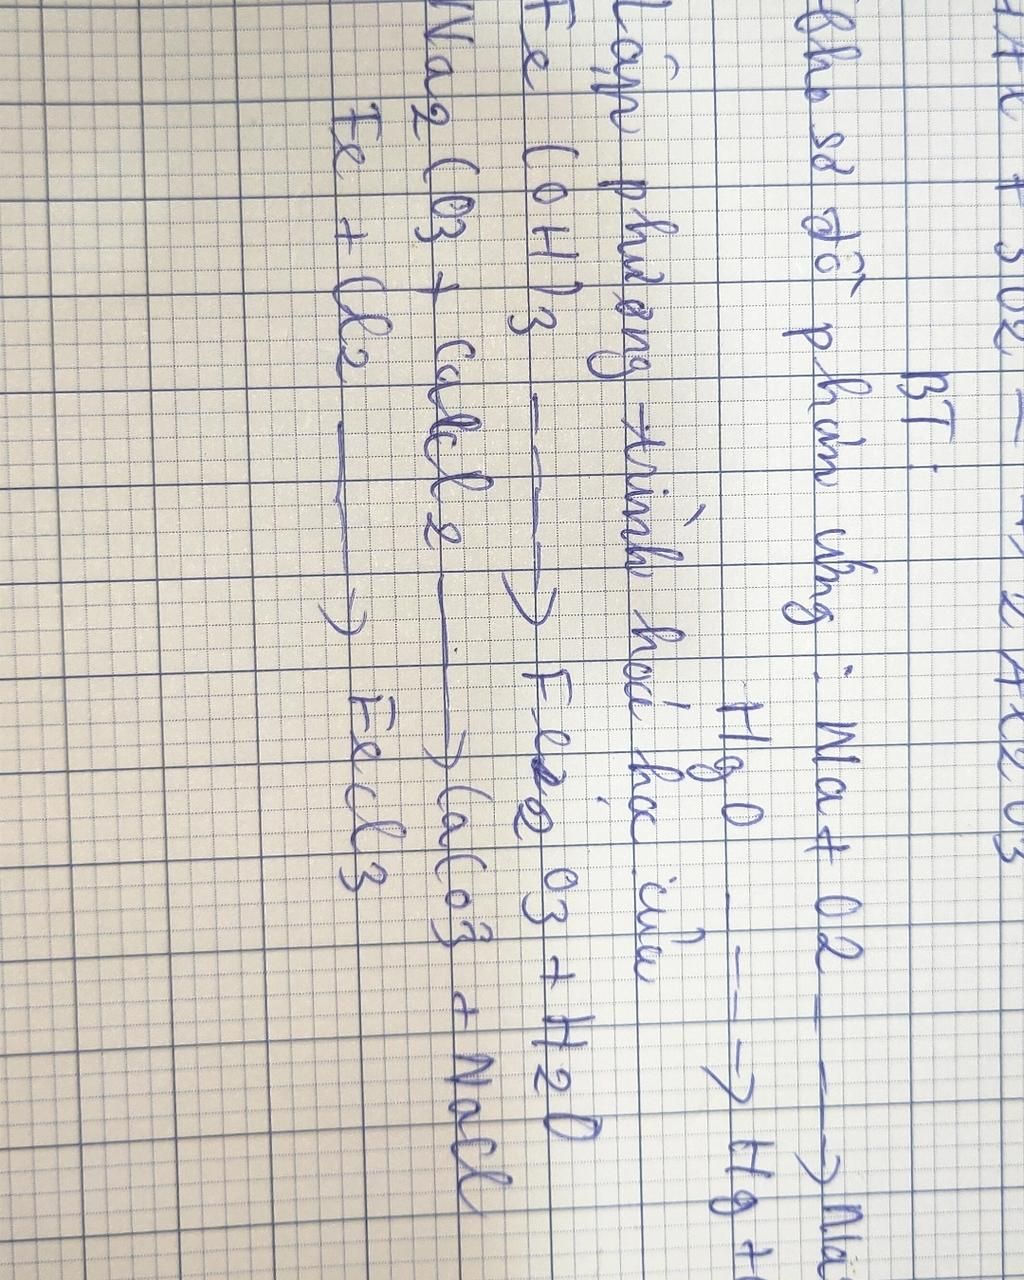 + 302 — 2 Al203
BT:
Cho sơ đồ phản ứng : Na + 02 ---> Na
Hg0 ---> Hg +
Lập phương trình hoá học của
Fe (OH)3 ---> Fe2 03 + H20
Na2 CO3 + CaCl2 —> CaCO3 + NaCl
Fe + Cl2 —> FeCl3